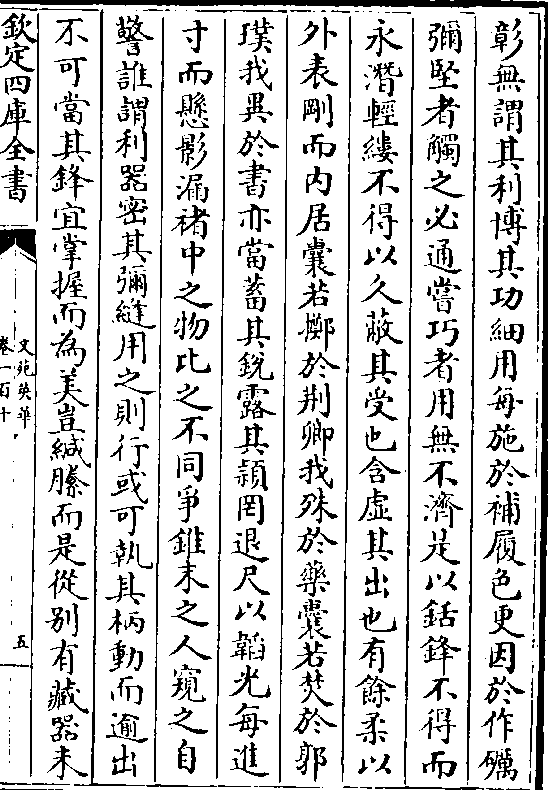 彰無謂其利博其功細用每施於補履色更因於作礪
彌堅者觸之必通嘗巧者用無不濟是以銛鋒不得而
永潛輕縷不得以久蔽其受也含虛其出也有餘柔以
外表剛而内居囊若擲於荆卿我殊於藥囊若焚於郭
璞我異於書亦當蓄其銳露其頴罔退尺以韜光每進
寸而懸影漏褚中之物比之不同爭錐末之人窺之自
警誰謂利器密其彌縫用之則行或可執其柄動而逾出
不可當其鋒宜掌握而為美豈緘縢而是從别有藏器未
欽定四庫全書
文苑英華
卷一百十
五